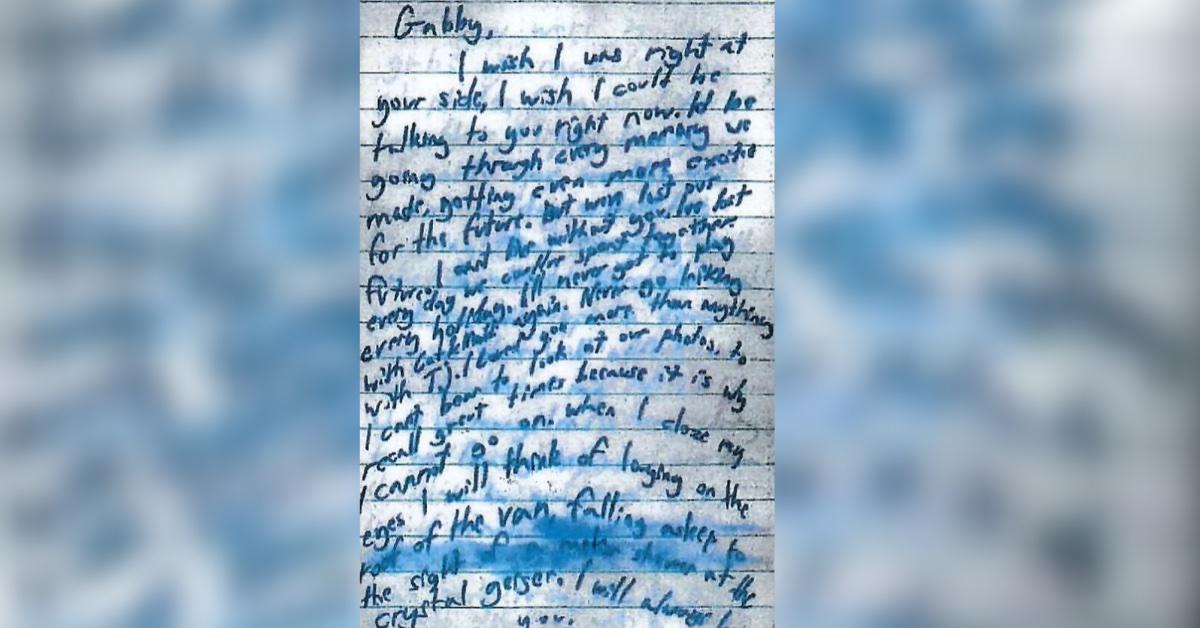 Gabby,
I wish I was right at
your side, I wish I could be
talking to you right now. Id be
going through every memory we
made, getting even more excited
for the future. But we've lost our
future. I cant live without you. Ive lost
every day we could've spent together.
every holiday. I'll never get to play
with again. Never go hiking
with TJ. I loved you more than anything
I cant bear to look at our photos, to
recall great times because it is why
I cannot go on. when I close my
eyes I will think of laughing on the
roof of the van, falling asleep to
the sight of at the
crystal geiser. I will always
you.